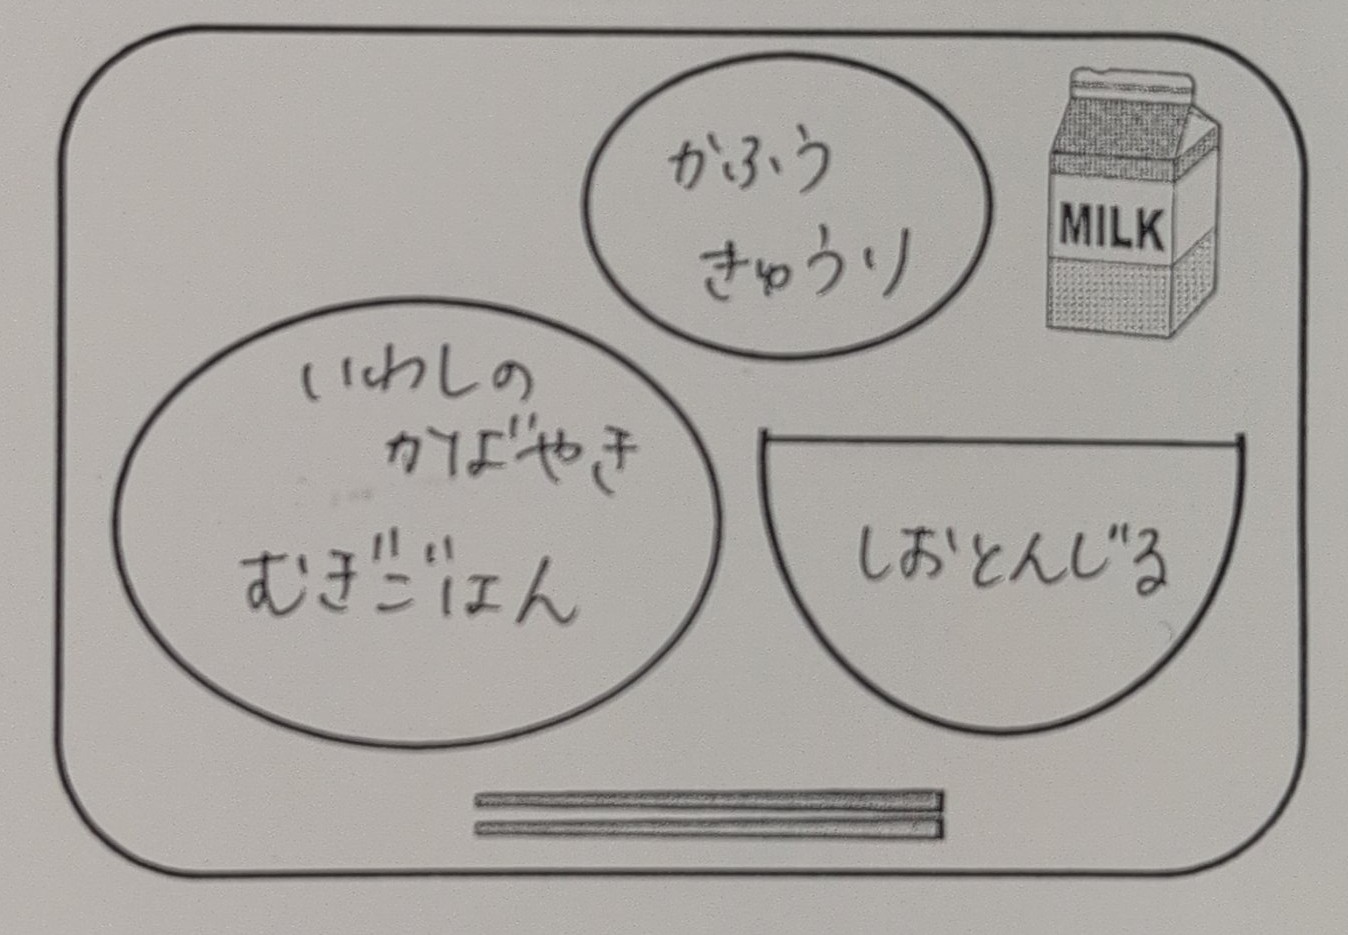 かふう
きゅうり
MILK
いわしの
かばやき
むぎごはん
しおとんじる